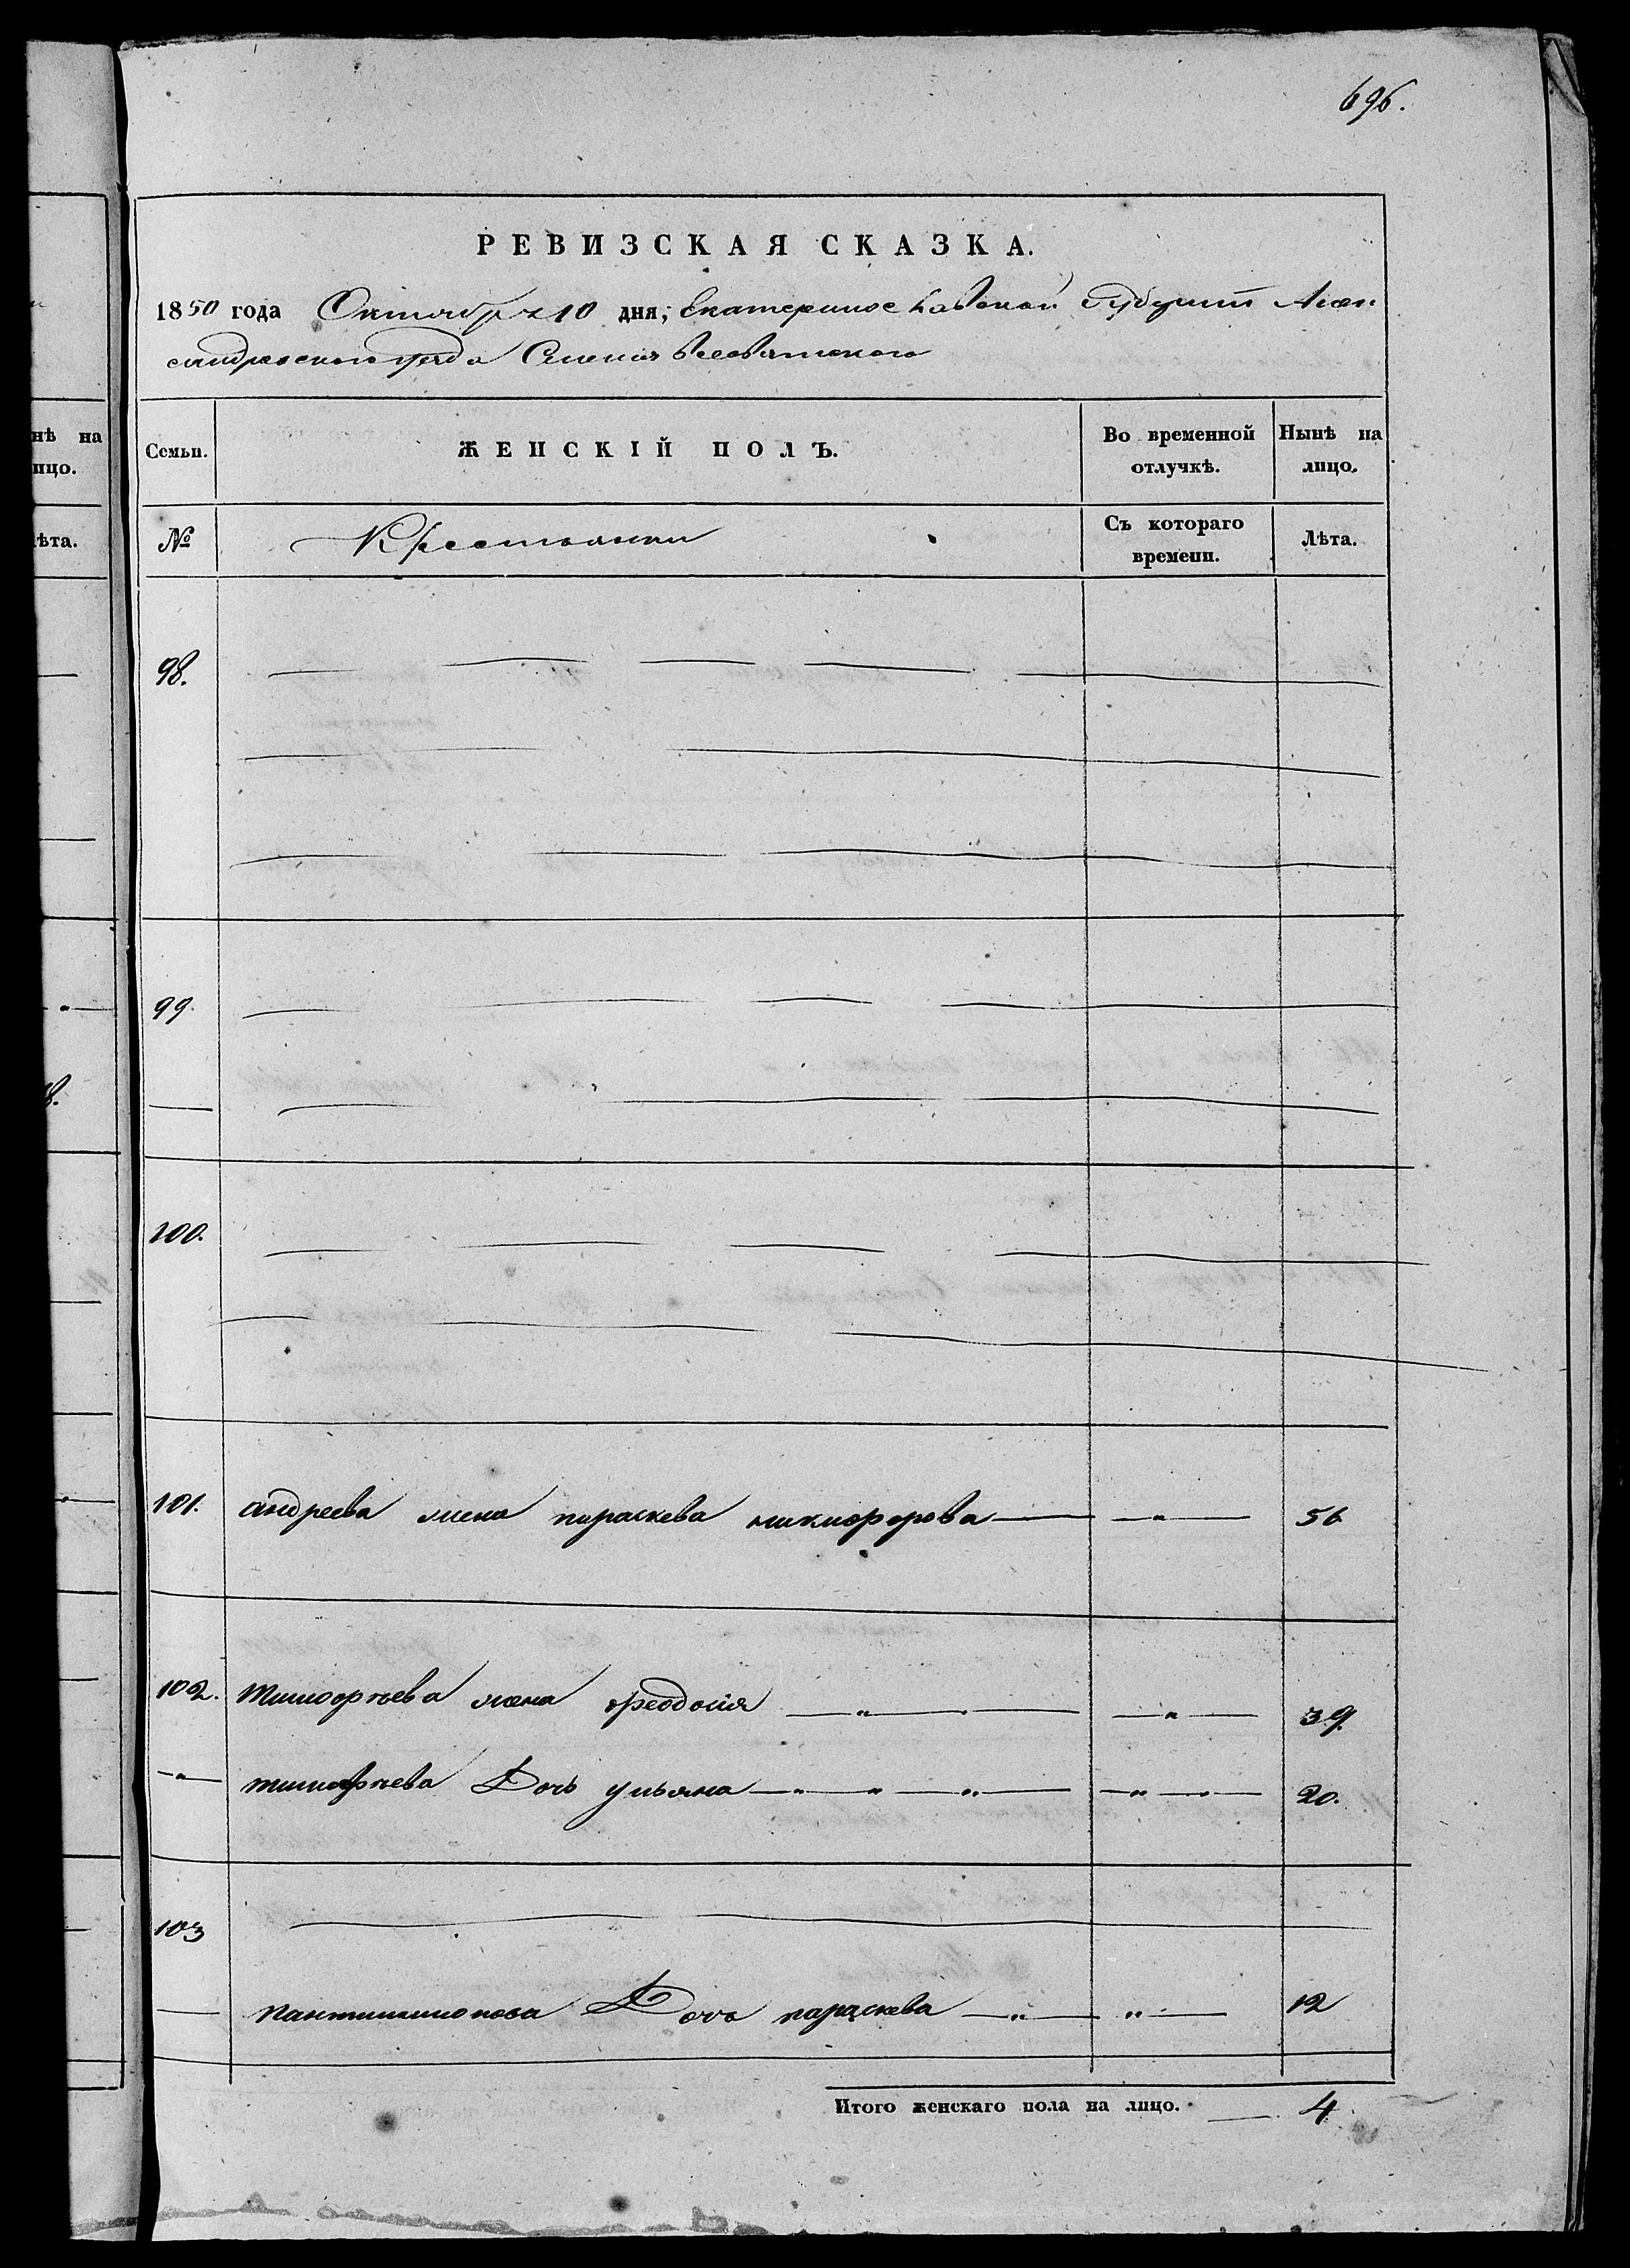 696.
РЕВИЗСКАЯ СКАЗКА.
1850 года Октября 10 дня; Екатеринославской Губернiи Алек
сандровского уезда Селенiя Всесвятского
нѣ на
ицо.
Семьи.
ЖЕНСКІЙ ПОЛЪ.
Во временной
отлучкѣ.
Нынѣ на
лицо.
ѣта.
№
Крестьянки
Съ котораго
времени.
Лѣта.
98.
99.
8.
100.
101. андреева жена параскева никифорова — „ — 56
102. тимофѣева жена феодосія — „ — — „ — 39.
— „ — тимофѣева Дочь ульяна — „ — „ — „ — — „ — „ — 20.
103
— пантилимонова Дочь параскева — „ — „ — 12
Итого женскаго пола на лицо. — 4